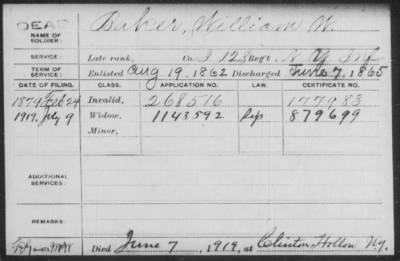 DEAF
NAME OF SOLDIER: Baker, William W.
SERVICE: Late rank, Co. I 128 Reg't N. Y. Inf
TERM OF SERVICE: Enlisted Aug 19, 1862 Discharged June 7, 1865
DATE OF FILING. CLASS. APPLICATION NO. LAW. CERTIFICATE NO.
1879 Feb 24 Invalid, 268516 177983
1919. July 9 Widow, 1143592 879699
Minor,
ADDITIONAL SERVICES:
REMARKS:
Died June 7, 1919, at Clinton Hollow N.Y.